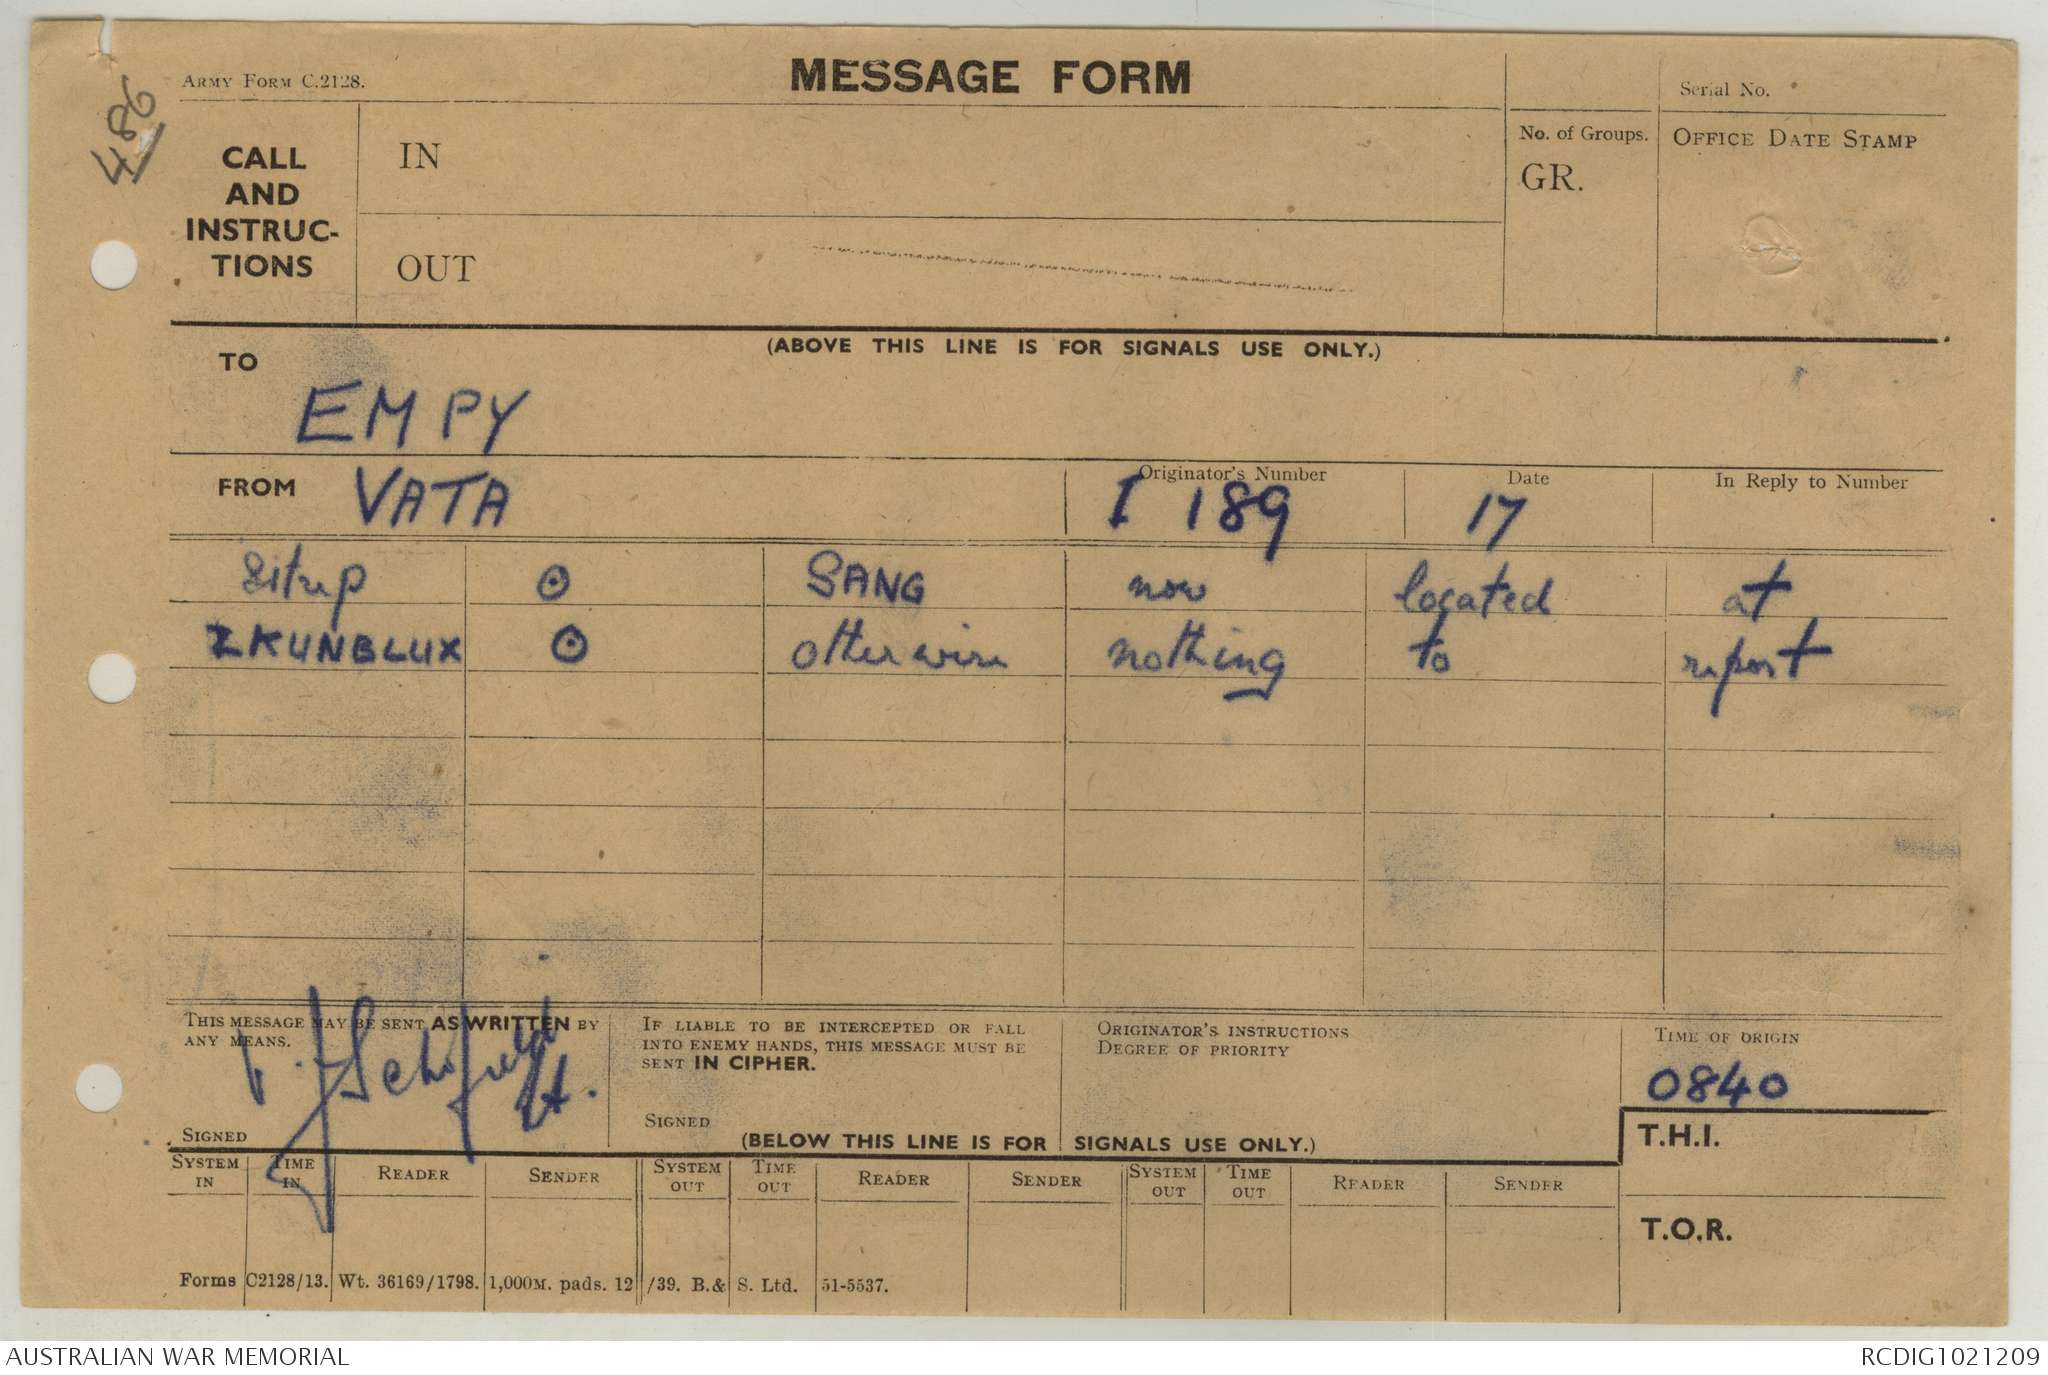 486
ARMY FORM C.2128.
MESSAGE FORM
Serial No.
CALL
AND
INSTRUC-
TIONS
IN
OUT
No. of Groups.
GR.
OFFICE DATE STAMP
(ABOVE THIS LINE IS FOR SIGNALS USE ONLY.)
TO
EMPY
FROM VATA
Originator's Number
I 189
Date
17
In Reply to Number
Sitrep ⊙ SANG now located at
ZKUNBLUX ⊙ otherwise nothing to report
THIS MESSAGE MAY BE SENT AS WRITTEN BY
ANY MEANS.
Schofield Lt.
SIGNED
IF LIABLE TO BE INTERCEPTED OR FALL
INTO ENEMY HANDS, THIS MESSAGE MUST BE
SENT IN CIPHER.
SIGNED
ORIGINATOR'S INSTRUCTIONS
DEGREE OF PRIORITY
TIME OF ORIGIN
0840
(BELOW THIS LINE IS FOR SIGNALS USE ONLY.)
T.H.I.
T.O.R.
SYSTEM IN TIME IN READER SENDER SYSTEM OUT TIME OUT READER SENDER SYSTEM OUT TIME OUT READER SENDER
Forms C2128/13. Wt. 36169/1798. 1,000M. pads. 12/39. B.& S. Ltd. 51-5537.
AUSTRALIAN WAR MEMORIAL
RCDIG1021209